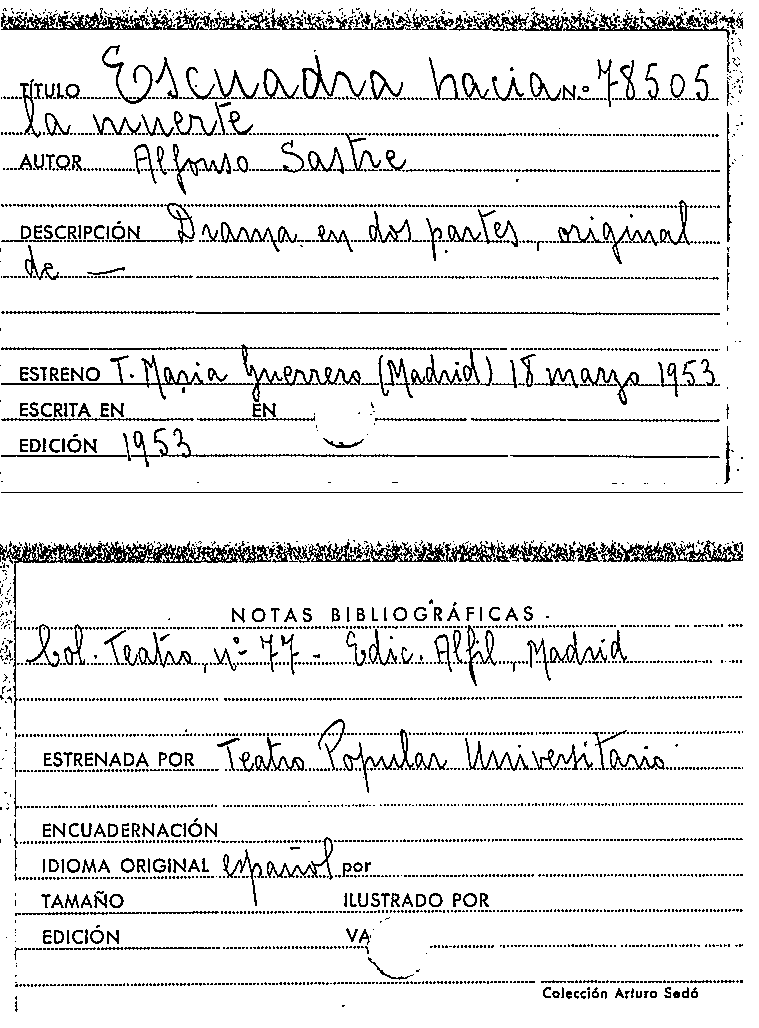 TÍTULO Escuadra hacia N.º 78505
la muerte
AUTOR Alfonso Sastre
DESCRIPCIÓN Drama en dos partes, original
de —
ESTRENO T. Maria Guerrero (Madrid) 18 marzo 1953
ESCRITA EN EN
EDICIÓN 1953
NOTAS BIBLIOGRÁFICAS
Col. Teatro, nº 77 - Edic. Alfil, Madrid
ESTRENADA POR Teatro Popular Universitario
ENCUADERNACIÓN
IDIOMA ORIGINAL español por
TAMAÑO ILUSTRADO POR
EDICIÓN VA
Colección Arturo Sedó